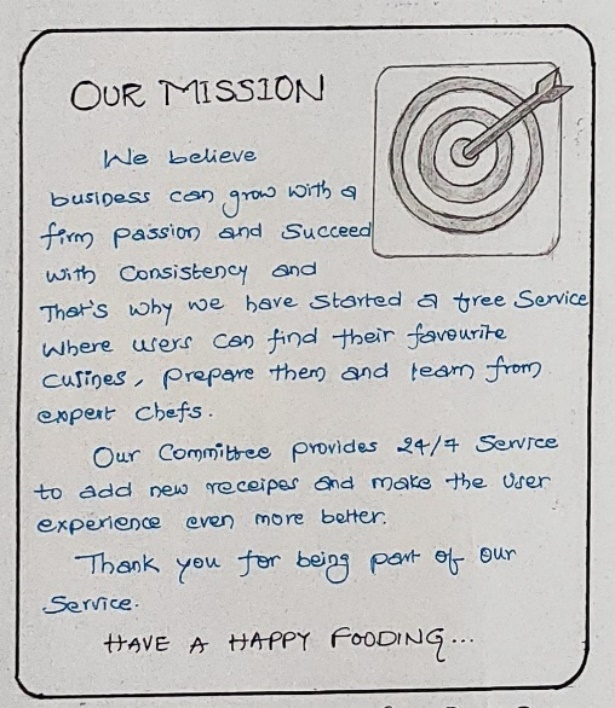 OUR MISSION
We believe
business can grow with a
firm passion and Succeed
with Consistency and
That's why we have Started a free Service
Where users can find their favourite
cusines, prepare them and learn from
expert chefs.
Our Committee provides 24/7 Service
to add new receipes and make the User
experience even more better.
Thank you for being part of our
Service.
HAVE A HAPPY FOODING...